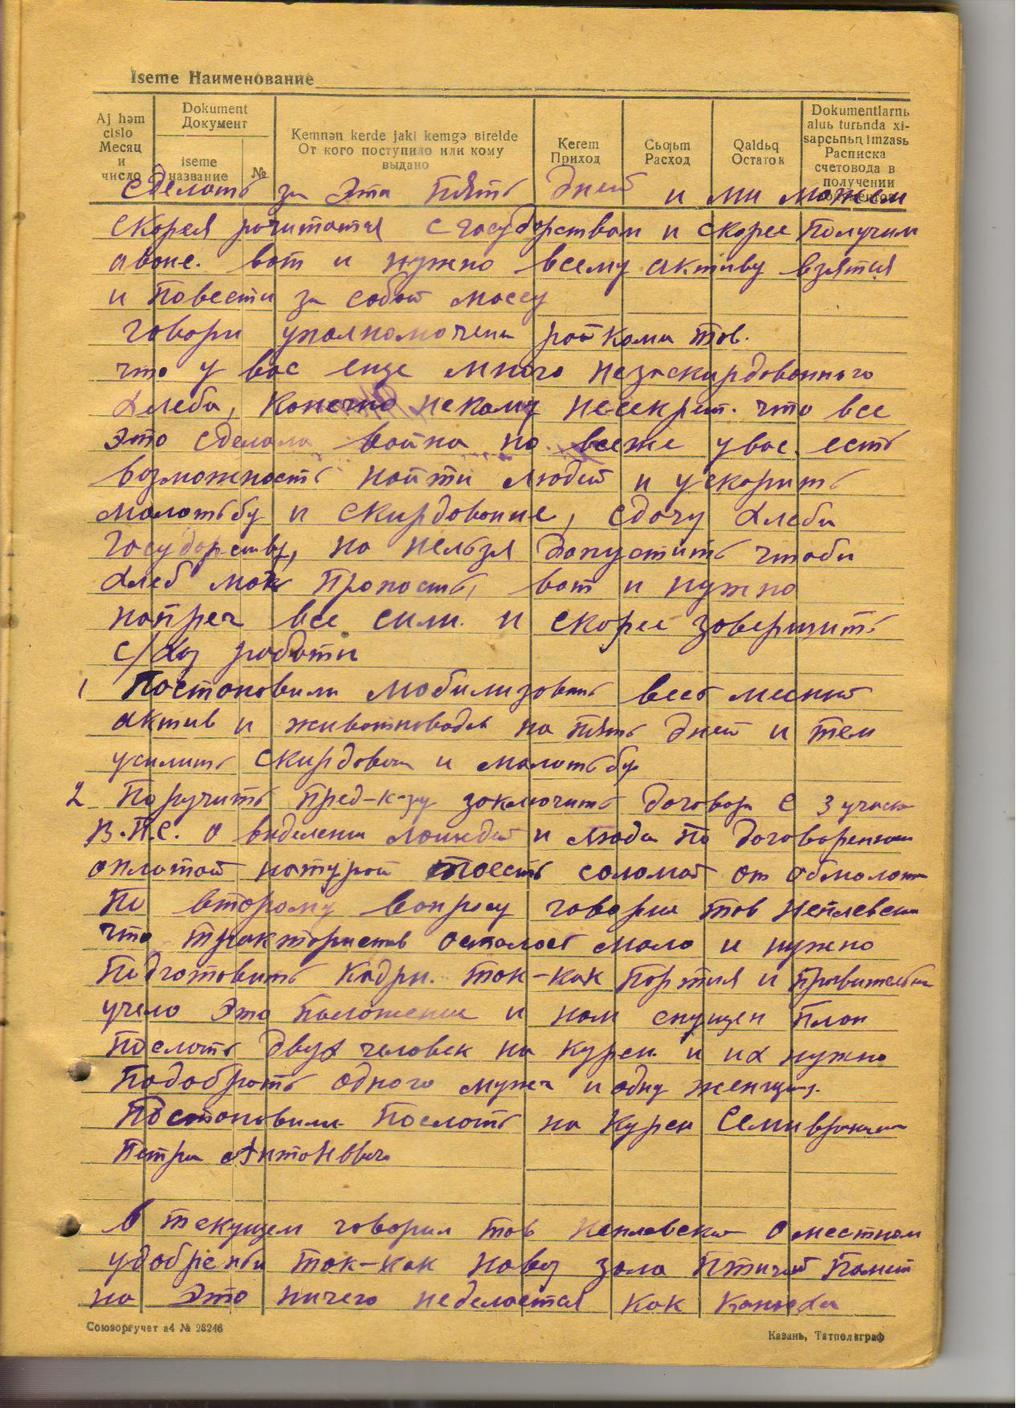 Iseme Наименование
Aj həm cislo
Месяц и число
Dokument
Документ
iseme
название
№
Kemnən kerde jaki kemgə birelde
От кого поступило или кому выдано
Kerem
Приход
Cьqьm
Расход
Qaldьq
Остаток
Dokumentlarnь
aluь turьnda xi-
sapcьnьꞑ imzasь
Расписка
счетовода в
получении
сделать за эта пять дней и ми можем
скорея рочитатся с государствам и скорее получим
авонс. вот и нужно всему активу взятся
и повести за собой массу
говори уполномочены райкома тов.
что у вас еще много незаскирдованного
хлеба, конечно некому несекрет. что все
это сделала война но всеже у вас есть
возможность найти людей и ускорить
малотьбу и скирдование, сдачу хлеба
государству, но нельзя допустить чтоби
хлеб мок пропость, вот и нужно
напреч все сили. и скорее завершить
с/хоз работи
1 Постановили мобилизовать весь месний
актив и животноводов на пять дней и тем
усилить скирдовани и малотьбу
2 Поручить пред-к-зу заключить договора с 3 участ
В.П.С. о виделени лошадей и люди по договоренаи
оплатой натурой тоесть соломой от обмолота
По второму вопросу говорил тов Неплевски
что трактористов осталось мало и нужно
подготовить кадри. так-как портия и провительст
учело это положение и нам спущен план
послать двух человек на курси и их нужно
подобрать одного мужч и одну женщину.
Постановили послать на курси
Петра Антоновича
В текущем говорил тов Неплевски о местном
удобрении так-как навоз зола птичей помет
на это ничего неделается как
Союзоргучет а4 № 28246
Казань, Татполиграф